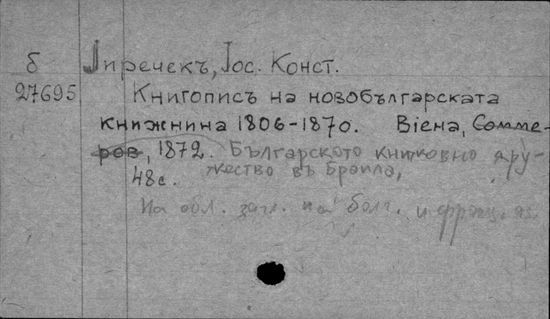 б Јиречекъ, Јос. Конст.
27695 Книгописъ на новобългарската
книжнина 1806-1870. Віена, Сомме-
ров, 1872. Българското книжовно дру-
48с. жество въ Браила,
На обл. загл. на болг. и франц. яз.